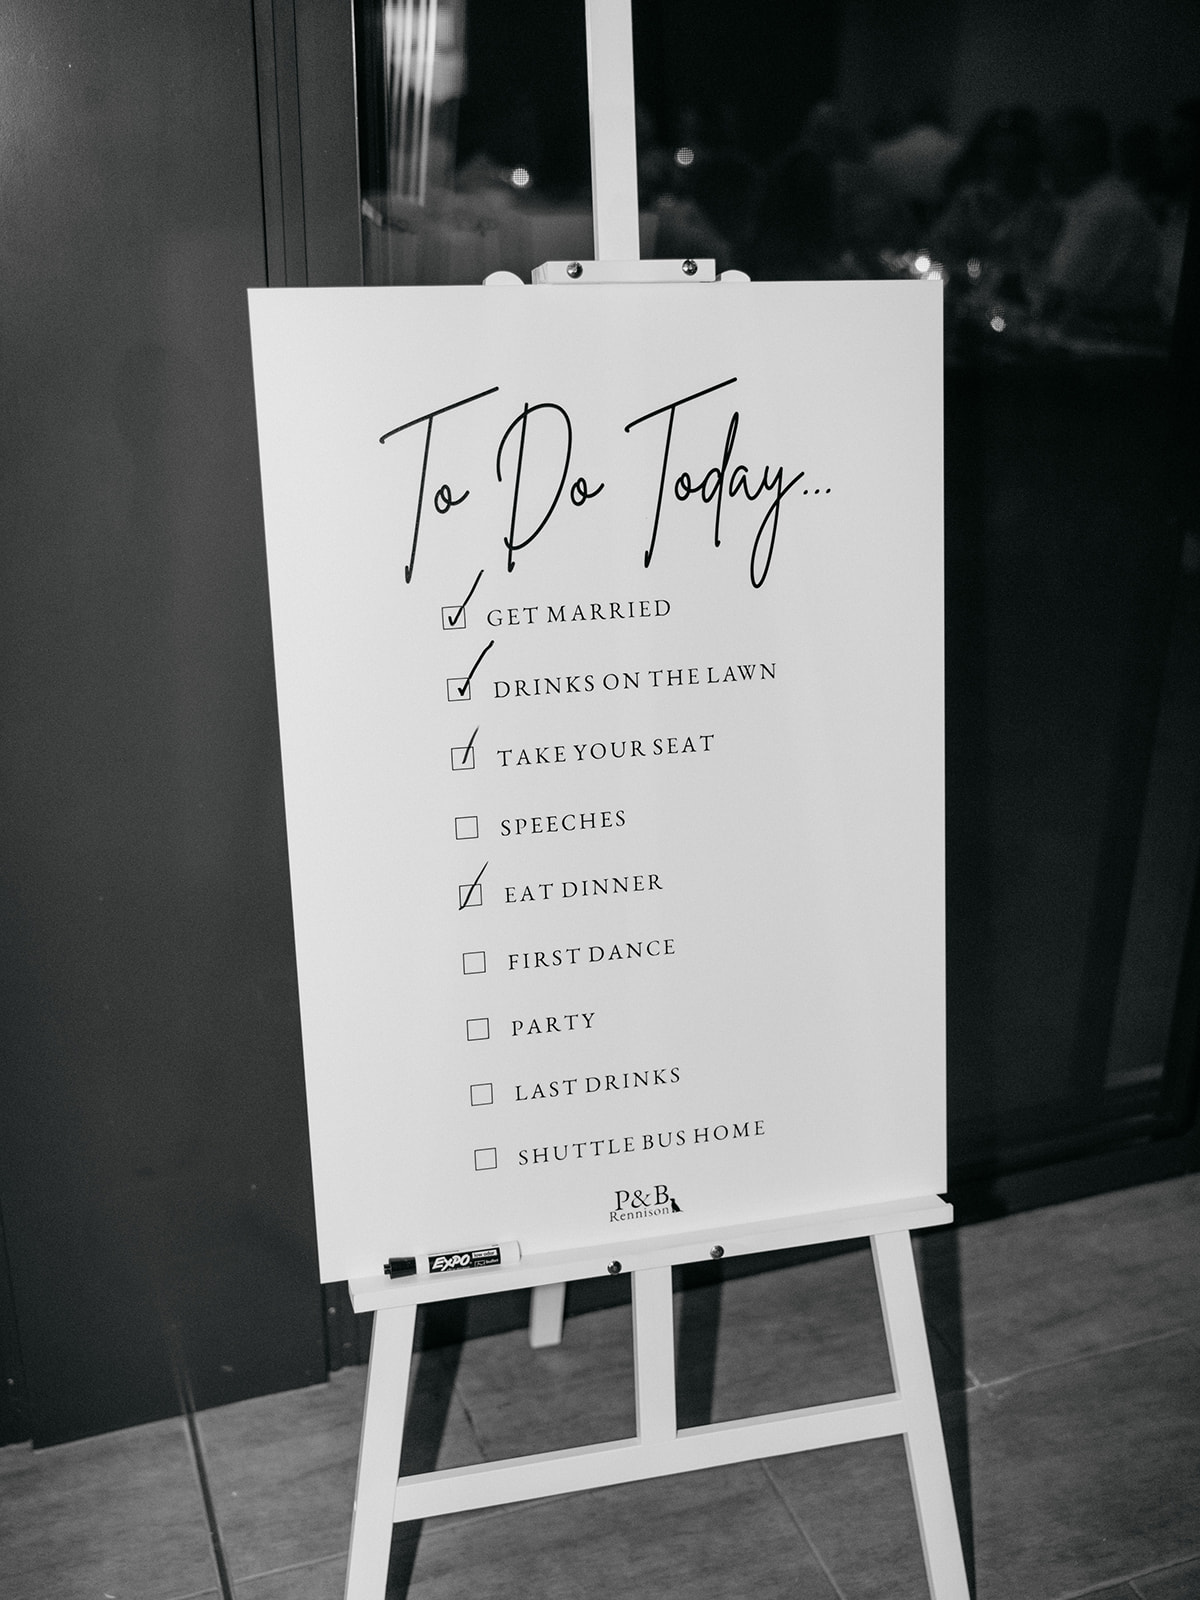 To Do Today...
GET MARRIED
DRINKS ON THE LAWN
TAKE YOUR SEAT
SPEECHES
EAT DINNER
FIRST DANCE
PARTY
LAST DRINKS
SHUTTLE BUS HOME
P&B
Rennison
EXPO low odor